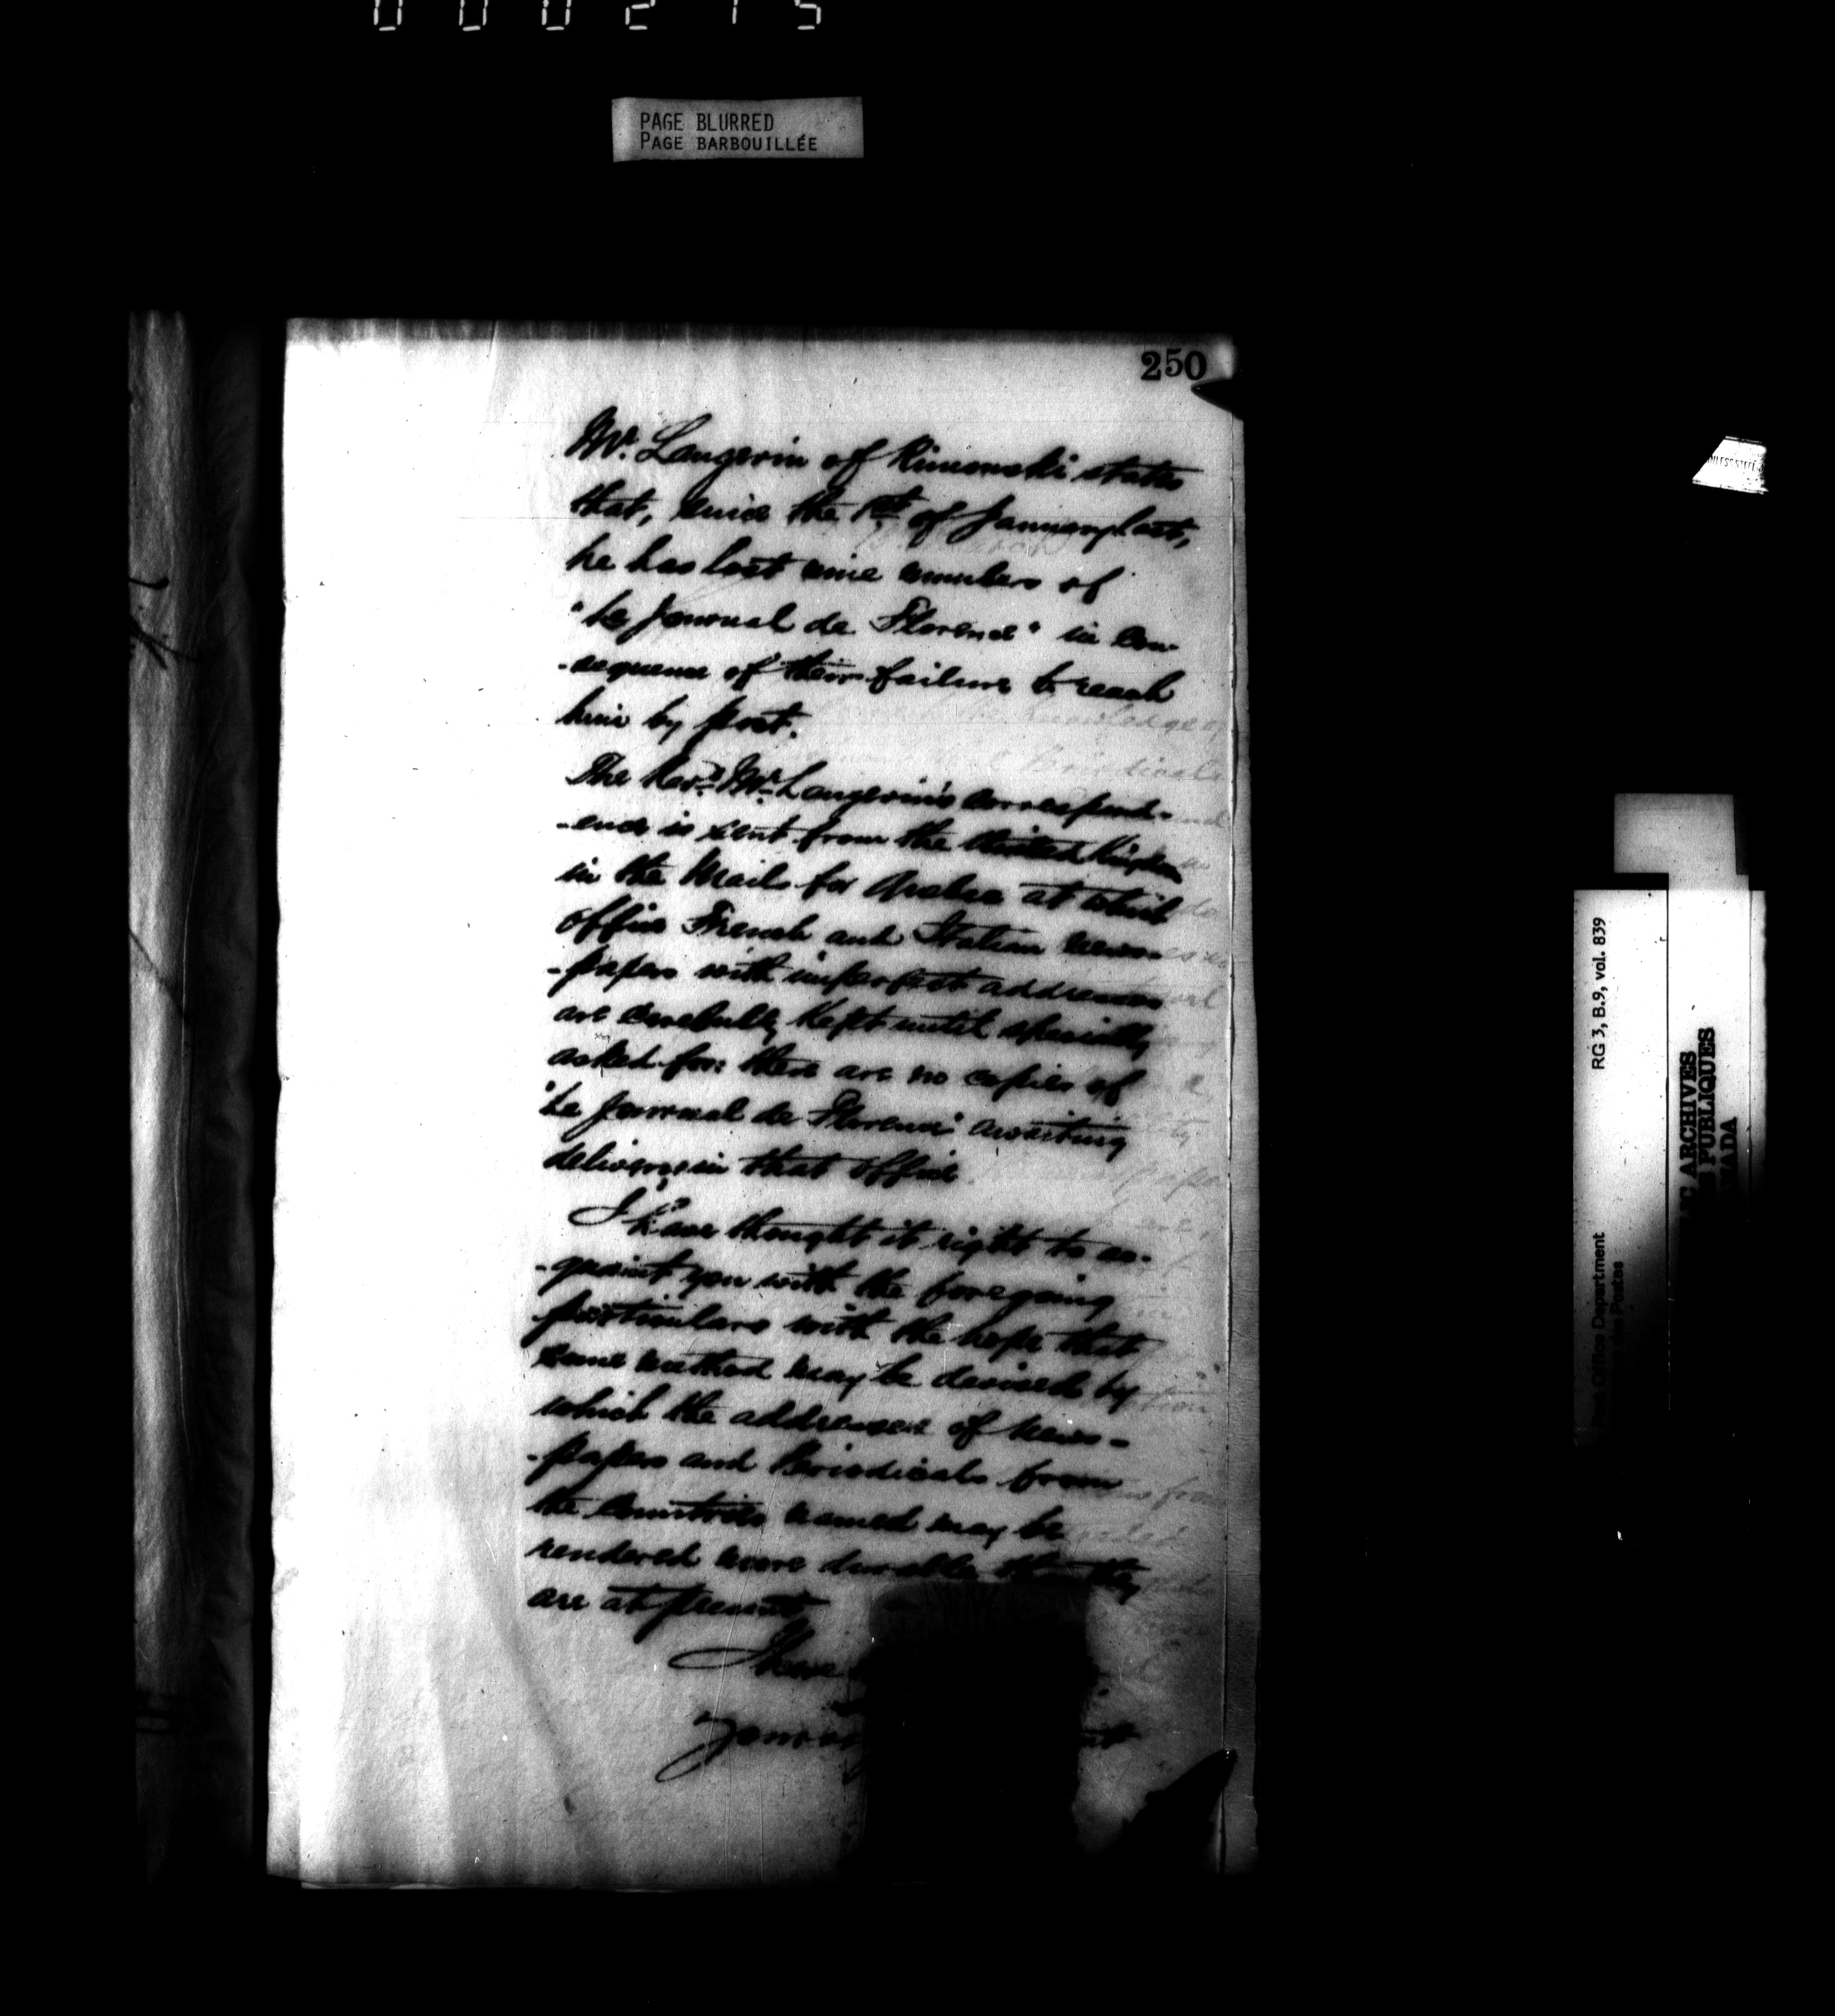 000215
PAGE BLURRED
PAGE BARBOUILLÉE
250
Mr. Langevin of Rimouski states
that, since the 1st of January last,
he has lost nine numbers of
"Le Journal de Florence" in con-
-sequence of their failure to reach
him by post.
The Revd. Mr. Langevin's correspond-
-ence is sent from the United Kingdom
in the Mails for Quebec at which
office French and Italian news-
-papers with imperfect addresses
are carefully kept until specially
asked for: there are no copies of
"Le Journal de Florence" awaiting
delivery in that office.
I have thought it right to ac-
-quaint you with the foregoing
particulars with the hope that
some method may be devised by
which the addresses of News-
-papers and Periodicals from
the Countries named may be
rendered more durable than they
are at present
I have
Your
RG 3, B.9, vol. 839
Office Department
Postes
ARCHIVES
PUBLIQUES